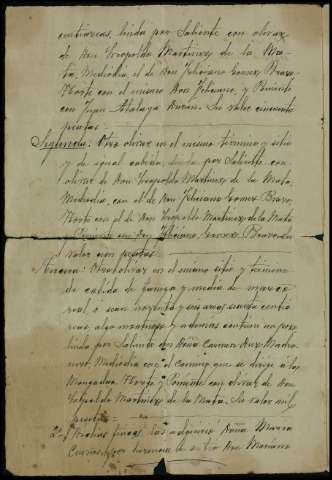 centiareas, linda por Saliente con olivar
de Don Leopoldo Martinez de la Ma-
ta, Mediodia, el de Don Feliciano Gomez Bravo
Norte con el mismo Don Feliciano, y Poniente
con Juan Atalaya Durán. Su valor cincuenta
pesetas.
Segunda: Otro olivar en el mismo termino y sitio
y de igual cabida, linda por Saliente con
olivar de Don Leopoldo Martinez de la Mata,
Mediodia, con el de Don Feliciano Gomez Bravo,
Norte con el de Don Leopoldo Martinez de la Mata
y Poniente con Don Feliciano Gomez Bravo. Su
valor cien pesetas.
Tercera: Otro olivar en el mismo sitio y termino
de cabida de fanega y media de marco
real o sean noventa y seis areas sesenta centia-
reas, algo montuoso y ademas contiene un pozo
linda por Saliente con Doña Carmen
Mediodia con el camino que se dirige a los
Norte y Poniente con olivar de Don
Leopoldo Martinez de la Mata. Su valor mil
pesetas.
2º Dichas fincas, las adquirió Doña Maria
por herencia de su tio Don Mariano